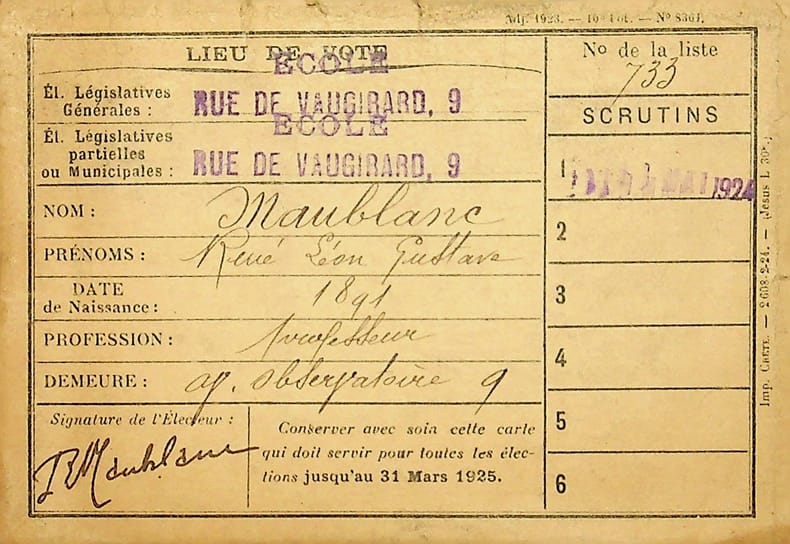 Adj. 1923. — 10e Lot. — No 8361.
LIEU DE VOTE
No de la liste
733
ECOLE
Él. Législatives
Générales :
RUE DE VAUGIRARD, 9
SCRUTINS
ECOLE
Él. Législatives
partielles
ou Municipales :
RUE DE VAUGIRARD, 9
1
MAI 1924
NOM :
Maublanc
2
PRÉNOMS :
René Léon Gustave
DATE
de Naissance :
1891
3
PROFESSION :
professeur
4
DEMEURE :
av. Observatoire 9
5
Signature de l'Électeur :
R Maublanc
Conserver avec soin cette carte
qui doit servir pour toutes les élec-
tions jusqu'au 31 Mars 1925.
6
Imp. CRÉTÉ. — 2608-2-24. — (Jésus L 30k.)